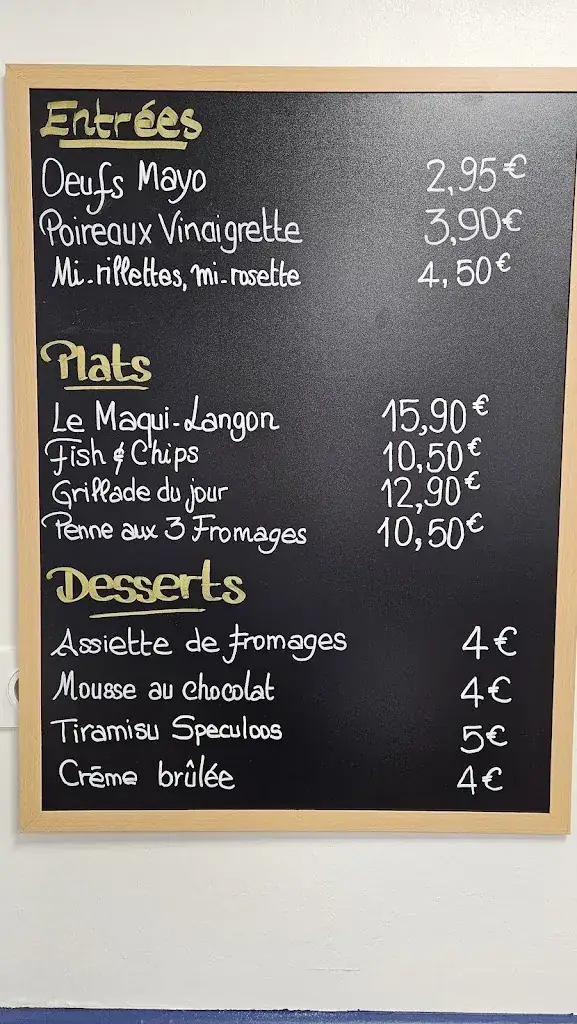 Entrées
Oeufs Mayo 2,95€
Poireaux Vinaigrette 3,90€
Mi-rillettes, mi-rosette 4,50€
Plats
Le Maqui-Langon 15,90€
Fish & Chips 10,50€
Grillade du jour 12,90€
Penne aux 3 Fromages 10,50€
Desserts
Assiette de fromages 4€
Mousse au chocolat 4€
Tiramisu Speculoos 5€
Crème brûlée 4€